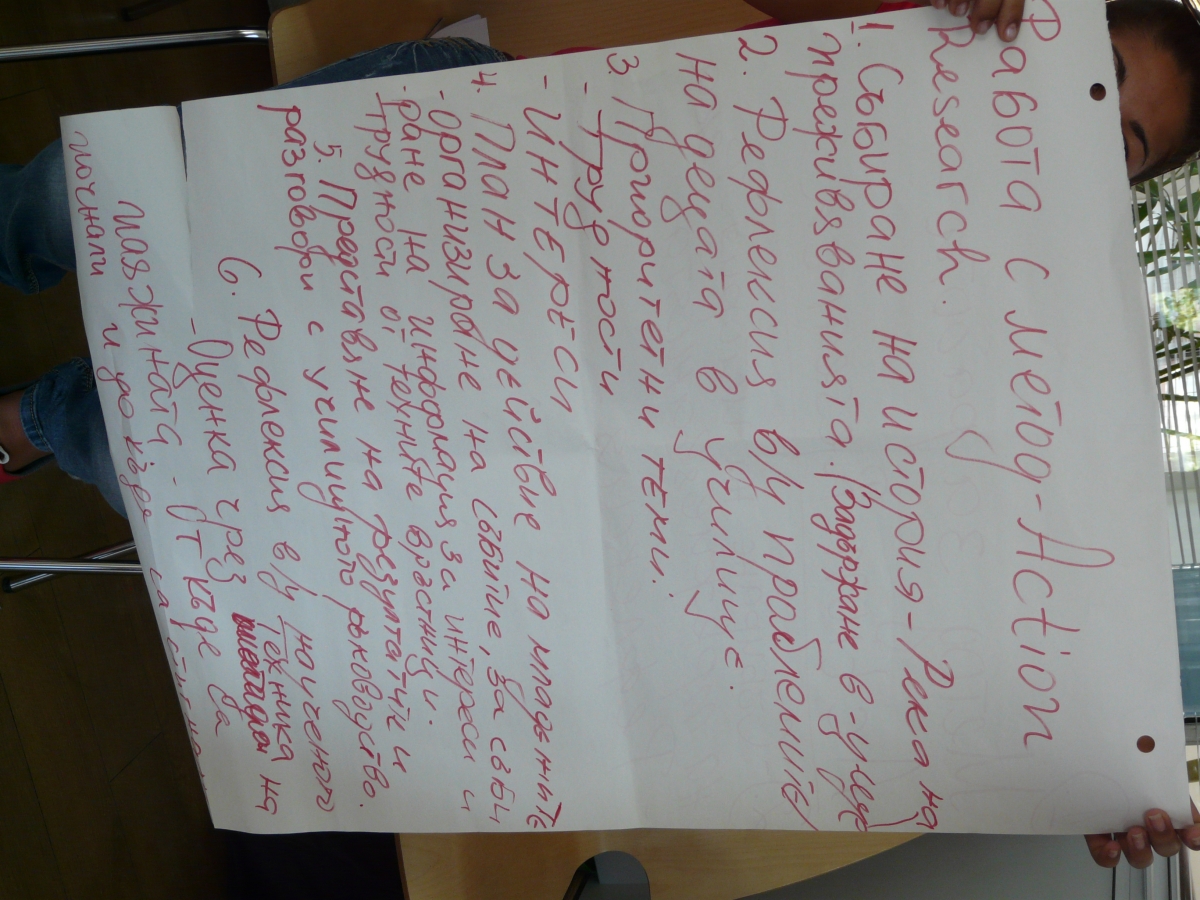 Работа с метод-Action
Research.
1. Събиране на история-Река на
преживяванията. (Задържане в у-ще)
2. Рефлексия в/у проблемите
на децата в училище.
3. Приоритетни теми.
- Трудности
- ИНТЕРЕСИ
4. План за действие на младежите
- организиране на събитие, за съби
ране на информация за интереси и
трудности от техните връстници.
5. Представяне на резултати и
разговори с училищното ръководство.
6. Рефлексия в/у наученото
- Оценка чрез техника на
плажината - От къде са
почнали и до къде са